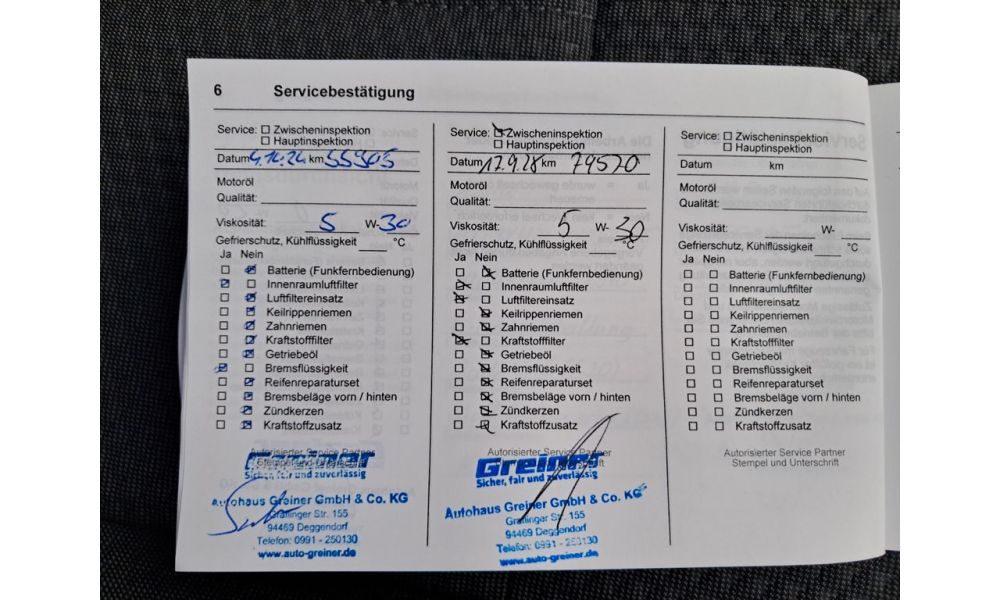 6 Servicebestätigung
Service: Zwischeninspektion
Hauptinspektion
Datum 4.12.24 km 55905
Motoröl
Qualität:
Viskosität: 5 W-30
Gefrierschutz, Kühlflüssigkeit °C
Ja Nein
Batterie (Funkfernbedienung)
Innenraumluftfilter
Luftfiltereinsatz
Keilrippenriemen
Zahnriemen
Kraftstofffilter
Getriebeöl
Bremsflüssigkeit
Reifenreparaturset
Bremsbeläge vorn / hinten
Zündkerzen
Kraftstoffzusatz
Autorisierter Service Partner
Stempel und Unterschrift
Greiner
Sicher, fair und zuverlässig
Autohaus Greiner GmbH & Co. KG
Graflinger Str. 155
94469 Deggendorf
Telefon: 0991 - 250130
www.auto-greiner.de
Service: Zwischeninspektion
Hauptinspektion
Datum 17.9.28 km 74520
Motoröl
Qualität:
Viskosität: 5 W- 30
Gefrierschutz, Kühlflüssigkeit °C
Ja Nein
Batterie (Funkfernbedienung)
Innenraumluftfilter
Luftfiltereinsatz
Keilrippenriemen
Zahnriemen
Kraftstofffilter
Getriebeöl
Bremsflüssigkeit
Reifenreparaturset
Bremsbeläge vorn / hinten
Zündkerzen
Kraftstoffzusatz
Autorisierter Service Partner
Greiner
Sicher, fair und zuverlässig
Autohaus Greiner GmbH & Co. KG
Graflinger Str. 155
94469 Deggendorf
Telefon: 0991 - 250130
www.auto-greiner.de
Service: Zwischeninspektion
Hauptinspektion
Datum km
Motoröl
Qualität:
Viskosität: W-
Gefrierschutz, Kühlflüssigkeit °C
Ja Nein
Batterie (Funkfernbedienung)
Innenraumluftfilter
Luftfiltereinsatz
Keilrippenriemen
Zahnriemen
Kraftstofffilter
Getriebeöl
Bremsflüssigkeit
Reifenreparaturset
Bremsbeläge vorn / hinten
Zündkerzen
Kraftstoffzusatz
Autorisierter Service Partner
Stempel und Unterschrift